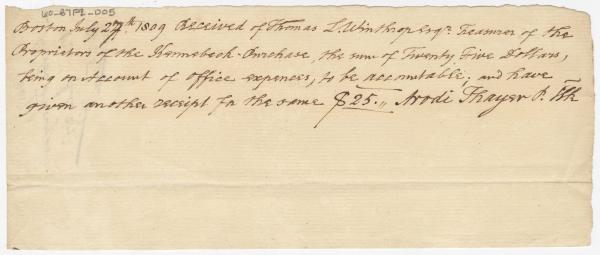 60-87P2-005
Boston July 27th. 1809 Received of Thomas L. Winthrop Esqr. Treasurer of the
Proprietors of the Kennebeck-Purchase, the sum of Twenty Five Dollars,
being on Account of office expences, to be accountable; and have
given another receipt for the same $25.,, Arodi Thayer P. Clk